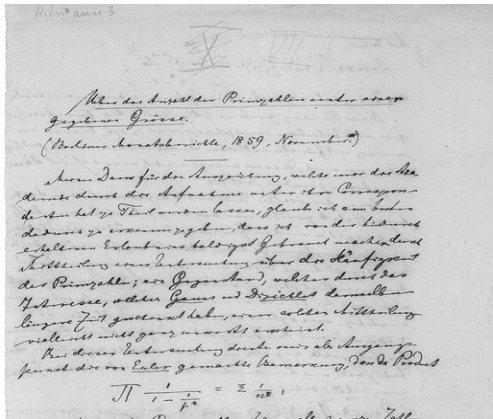 Riemann 3
X VII
Ueber die Anzahl der Primzahlen unter einer
gegebenen Grösse.
(Berliner Monatsberichte, 1859, November.)
Meinen Dank für die Auszeichnung, welche mir die Aka
demie durch die Aufnahme unter ihre Correspon-
denten hat zu Theil werden lassen, glaube ich am besten
dadurch zu erkennen zu geben, dass ich von der hiedurch
erhaltenen Erlaubniss baldigst Gebrauch mache durch
Mittheilung einer Untersuchung über die Häufigkeit
der Primzahlen; ein Gegenstand, welcher durch das
Interesse, welches Gauss und Dirichlet demselben
längere Zeit geschenkt haben, einer solchen Mittheilung
vielleicht nicht ganz unwerth erscheint.
Bei dieser Untersuchung diente mir als Ausgangs-
punkt die von Euler gemachte Bemerkung, dass das Product
∏ 1/(1 - 1/p^s) = Σ 1/n^s,